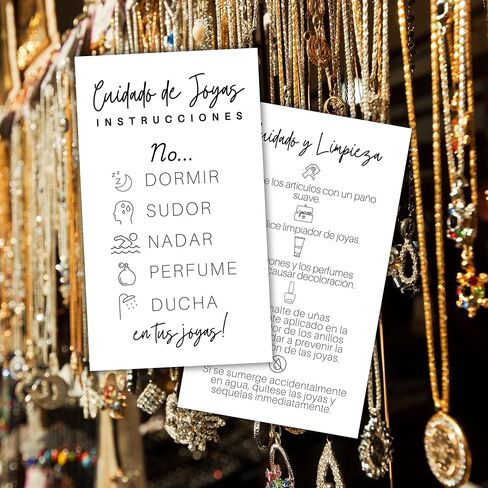 Cuidado de Joyas
INSTRUCCIONES
No...
DORMIR
SUDOR
NADAR
PERFUME
DUCHA
en tus joyas!
uidado y Limpieza
e los artículos con un paño
suave.
ice limpiador de joyas.
ones y los perfumes
causar decoloración.
malte de uñas
te aplicado en la
or de los anillos
dar a prevenir la
ón de las joyas.
Si se sumerge accidentalmente
en agua, quítese las joyas y
séquelas inmediatamente.